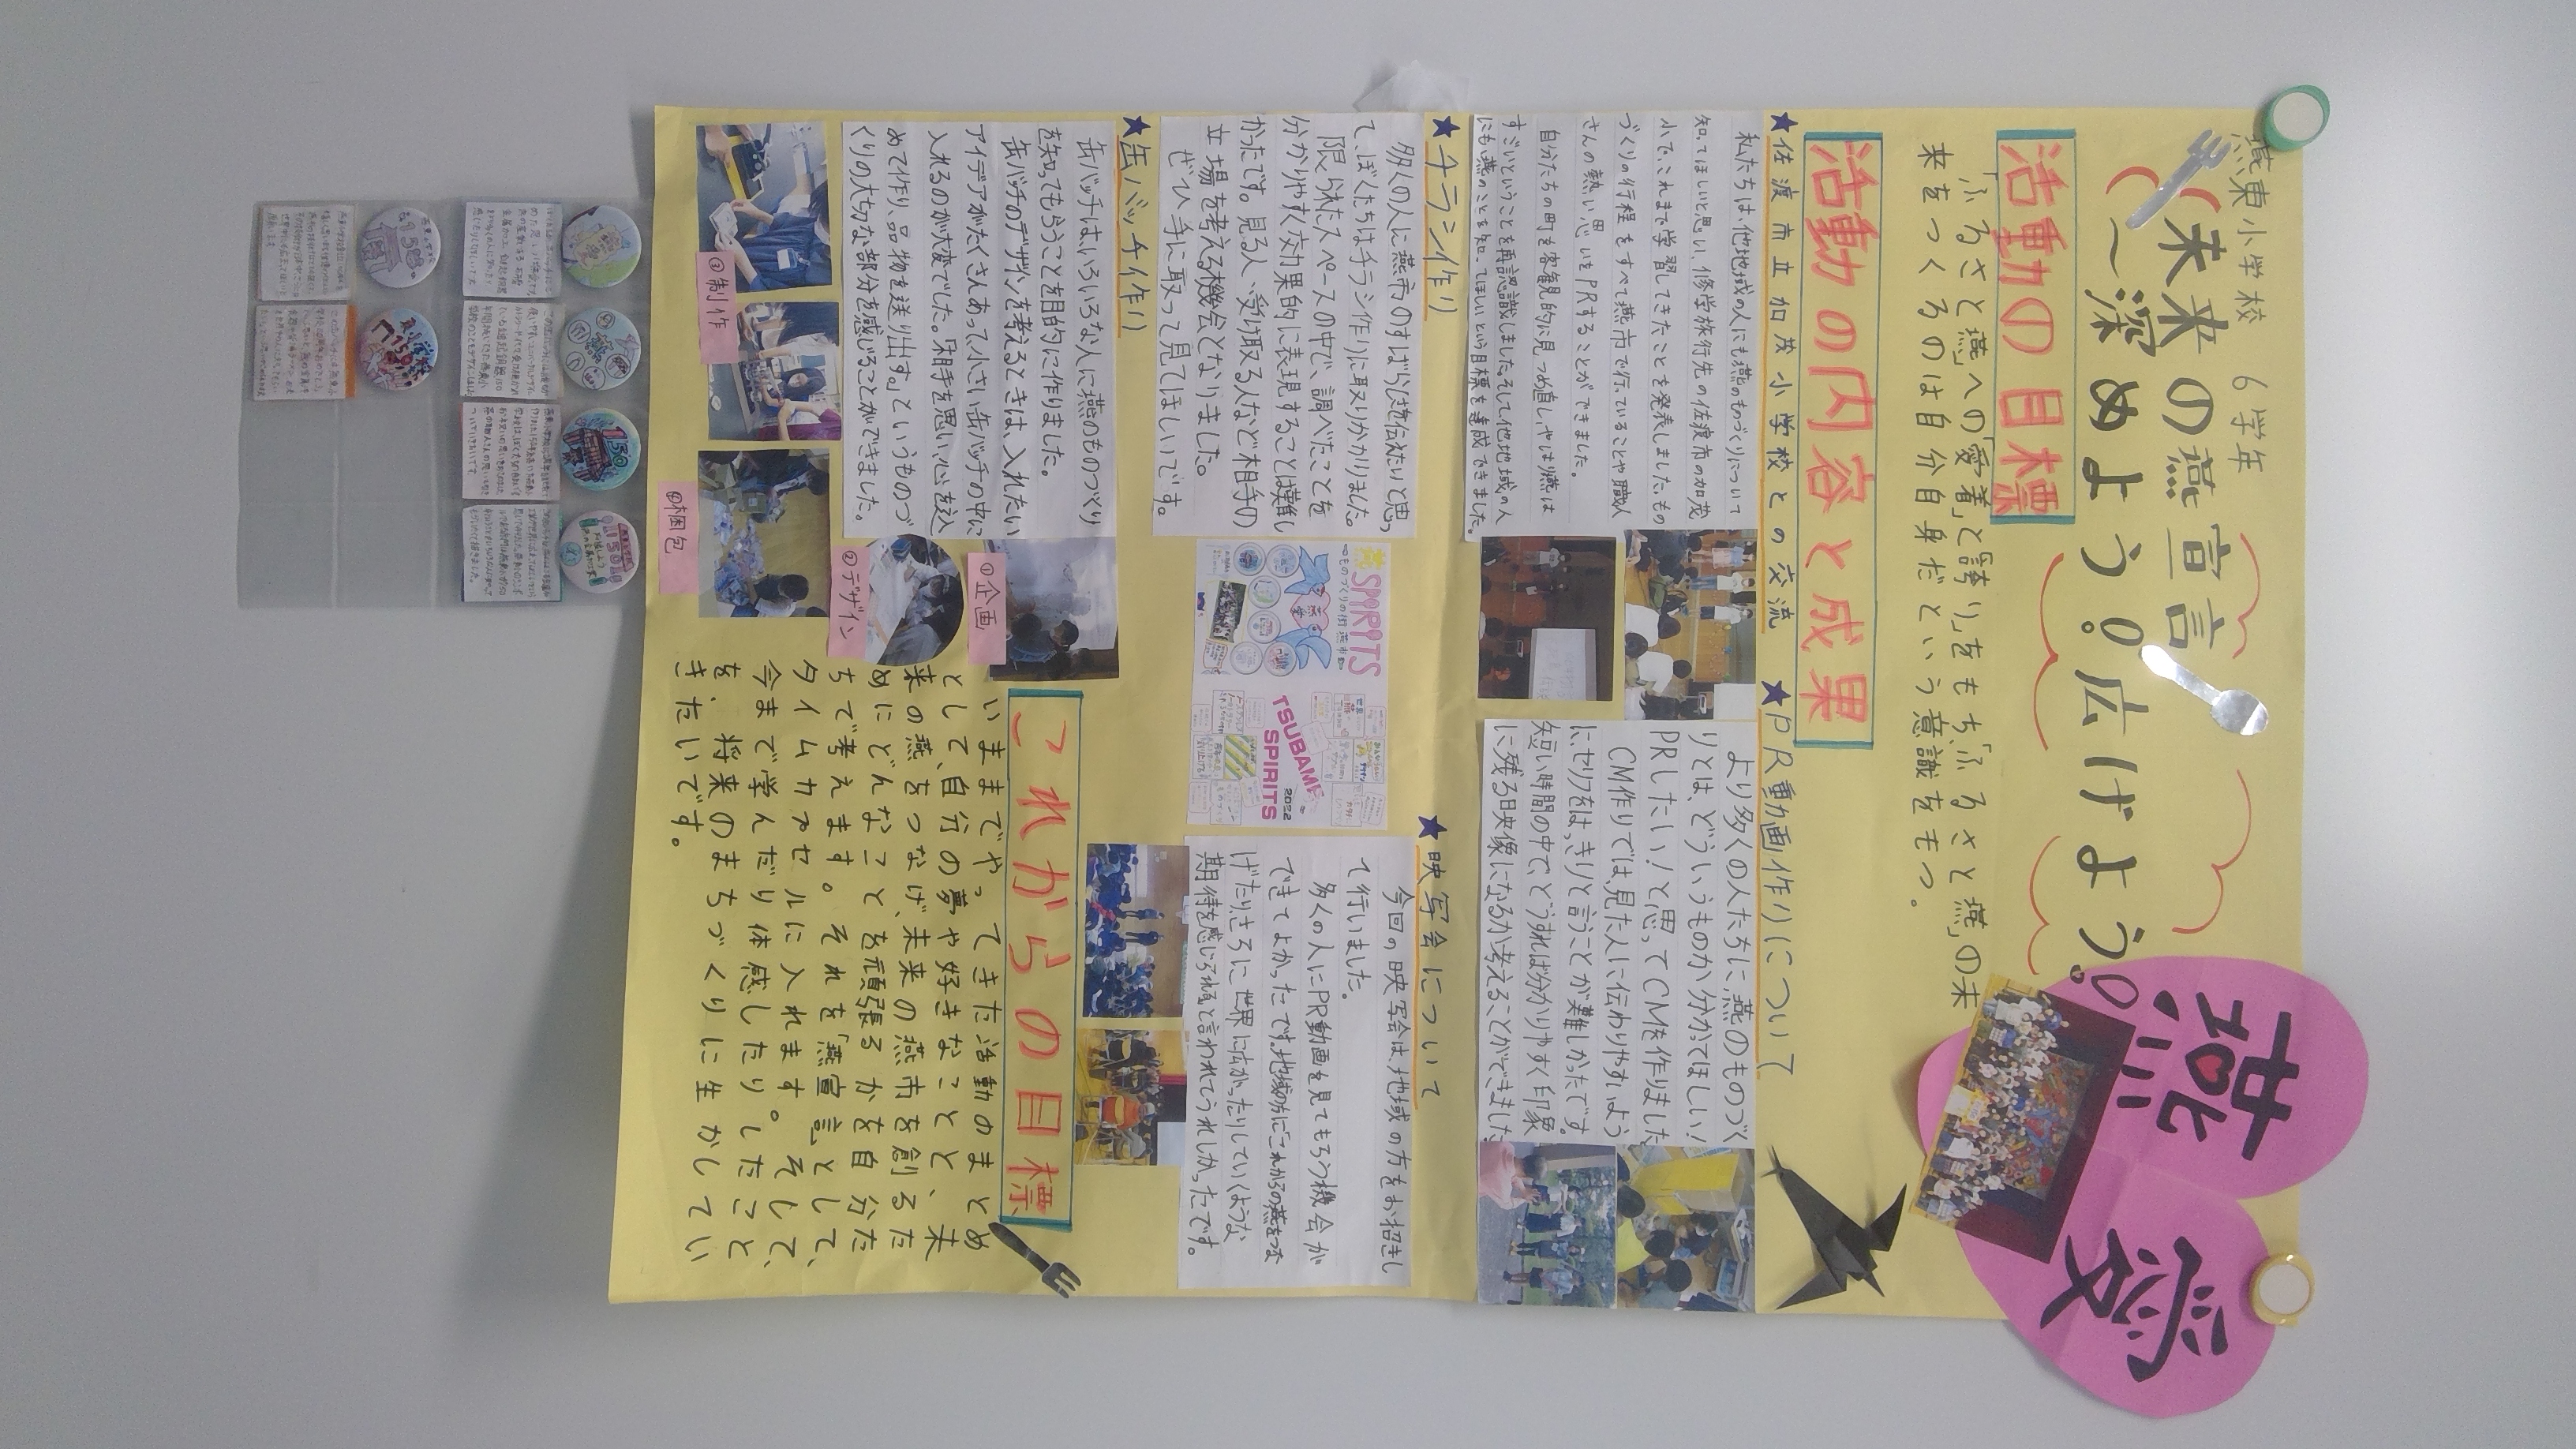 燕東小学校 6学年
未来の燕宣言
〜深めよう。広げよう。
燕
愛
活動の目標
「ふるさと燕」への「愛着」と「誇り」をもち、「ふるさと燕」の未
来をつくるのは自分自身だという意識をもつ。
活動の内容と成果
★佐渡市立加茂小学校との交流
私たちは、他地域の人にも燕のものづくりについて
知ってほしいと思い、修学旅行先の佐渡市の加茂
小で、これまで学習してきたことを発表しました。もの
づくりの行程をすべて燕市で行っていることや職人
さんの熱い思いもPRすることができました。
自分たちの町を客観的に見つめ直し、やはり燕は
すごいということを再認識しました。そして他地域の人
にも、燕のことを知ってほしいという目標を達成できました。
★PR動画作りについて
より多くの人たちに、燕のものづく
りとは、どういうものか分かってほしい!
PRしたい!と思ってCMを作りました
CM作りでは、見た人に伝わりやすいよう
に、セリフをはっきりと言うことが難しかったです。
短い時間の中で、どうすれば分かりやすく印象
に残る映像になるか考えることができました
★チラシ作り
多くの人に燕市のすばらしさを伝えたいと思っ
て、ぼくたちはチラシ作りに取りかかりました。
限られたスペースの中で、調べたことを
分かりやすく効果的に表現することは難し
かったです。見る人、受け取る人など相手の
立場を考える機会となりました。
ぜひ、手に取って見てほしいです。
SPORITS
ものづくりの街 燕市
TSUBAME
SPIRITS
2022
★映写会について
今回の映写会は、地域の方をお招きし
て行いました。
多くの人にPR動画を見てもらう機会が
できてよかったです。地域の方に「これからの燕をつな
げたり、さらに世界に広がったりしていくような
期待を感じられる」と言われてうれしかったです。
★缶バッチ作り
缶バッチは、いろいろな人に燕のものづくり
を知ってもらうことを目的に作りました。
缶バッチのデザインを考えるときは、入れたい
アイデアがたくさんあって小さい缶バッチの中に
入れるのが大変でした。「相手を思い、心を込
めて作り、品物を送り出す。」というものづ
くりの大切な部分を感じることができました。
①企画
②デザイン
③制作
④梱包
これからの目標
いままでやってきた活動のまとめ
として、自分の夢や好きなことと、未
来の燕をつなげ、未来の燕市を創るた
めにどんなことを頑張るかを自分た
ちで考えます。それを「燕宣言」として、
タイムカプセルに入れます。そして、
今まで学んだり体感したりしたこと
を、将来のまちづくりに生かしてい
きたいです。
150
150
150
150